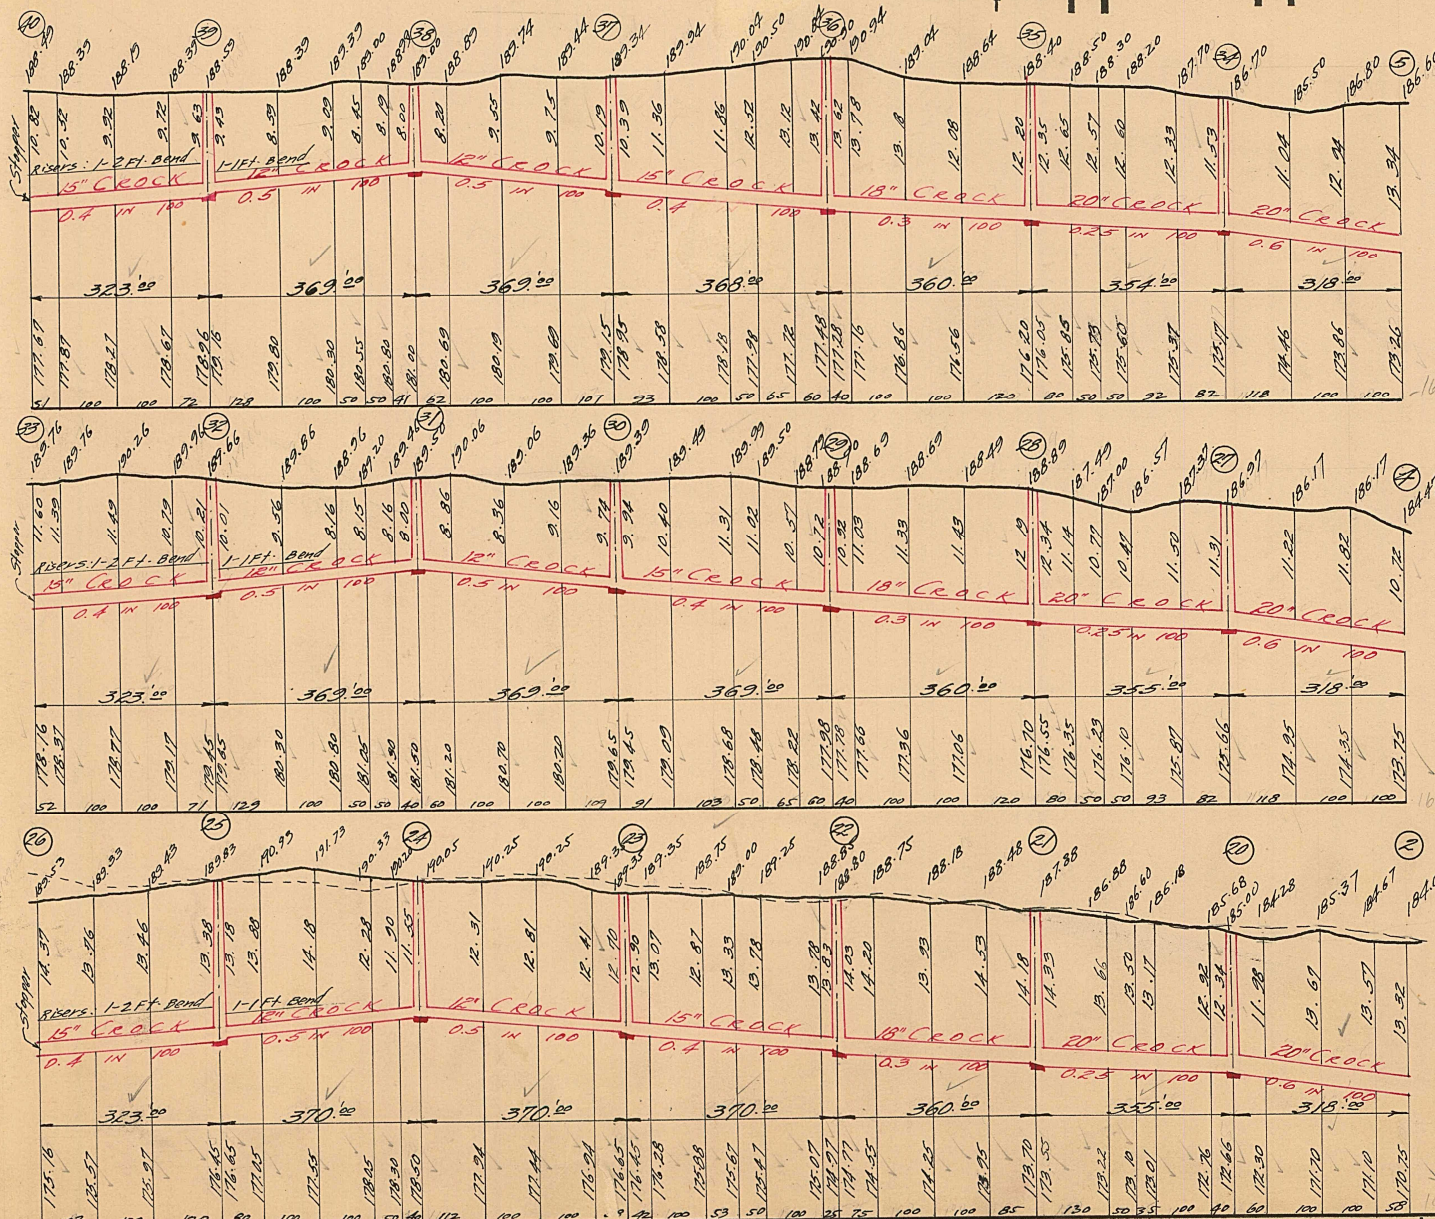 40 39 38 37 36 35 34 5
188.49 188.39 188.19 188.39 188.59 188.39 189.39 189.00 188.89 189.74 189.44 189.34 189.94 190.04 190.50 190.94 189.04 188.64 188.40 188.50 188.30 188.20 187.70 186.70 185.50 186.80 186.60
Stopper
10.82 10.52 9.92 9.72 9.63 9.43 8.59 9.09 8.45 8.19 8.00 8.20 9.55 9.75 10.19 10.39 11.36 11.86 12.52 13.12 13.42 13.62 13.78 12.08 12.20 12.35 12.65 12.57 12.60 12.33 11.53 11.04 12.94 13.34
Risers: 1-2 Ft. Bend 1-1 Ft. Bend
15" CROCK 12" CROCK 12" CROCK 15" CROCK 18" CROCK 20" CROCK 20" CROCK
0.4 IN 100 0.5 IN 100 0.5 IN 100 0.4 100 0.3 IN 100 0.25 IN 100 0.6 IN 100
323.'00 369.'00 369.'00 368.'00 360.'00 354.'00 318.'00
177.67 177.87 178.27 178.67 178.96 179.16 179.80 180.30 180.55 180.80 181.00 180.69 180.19 179.69 179.15 178.95 178.58 178.18 177.98 177.72 177.48 177.28 177.16 176.86 176.56 176.20 176.05 175.85 175.73 175.60 175.37 175.17 174.46 173.86 173.26
51 100 100 72 128 100 50 50 41 62 100 100 101 93 100 50 65 60 40 100 100 120 80 50 50 92 82 118 100 100
33 32 31 30 29 28 27 4
189.76 189.76 190.26 189.96 189.66 189.86 188.96 189.20 189.46 189.50 190.06 189.06 189.36 189.39 189.49 189.99 189.50 188.79 188.70 188.69 188.69 188.49 188.89 187.49 187.00 186.57 187.37 186.97 186.17 186.17 184.47
Stopper
11.60 11.39 11.49 10.79 10.21 10.01 9.56 8.16 8.15 8.16 8.00 8.86 8.36 9.16 9.74 9.94 10.40 11.31 11.02 10.57 10.72 10.92 11.03 11.33 11.43 12.19 12.34 11.14 10.77 10.47 11.50 11.31 11.22 11.82 10.72
Risers: 1-2 Ft. Bend 1-1 Ft. Bend
15" CROCK 12" CROCK 12" CROCK 15" CROCK 18" CROCK 20" CROCK 20" CROCK
0.4 IN 100 0.5 IN 100 0.5 IN 100 0.4 IN 100 0.3 IN 100 0.25 IN 100 0.6 IN 100
323.'00 369.'00 369.'00 369.'00 360.'00 355.'00 318.'00
178.16 178.37 178.77 179.17 179.45 179.65 180.30 180.80 181.05 181.30 181.50 181.20 180.70 180.20 179.65 179.45 179.09 178.68 178.48 178.22 177.98 177.78 177.66 177.36 177.06 176.70 176.55 176.35 176.23 176.10 175.87 175.66 174.95 174.35 173.75
52 100 100 71 129 100 50 50 40 60 100 100 109 91 103 50 65 60 40 100 100 120 80 50 50 93 82 118 100 100
26 25 24 23 22 21 20 2
189.53 189.33 189.43 189.83 190.93 191.73 190.33 190.20 190.05 190.25 190.25 189.35 189.35 189.35 188.75 189.00 189.25 188.85 188.80 188.75 188.18 188.48 187.88 186.88 186.60 186.18 185.68 185.00 184.28 185.37 184.67
Stopper
14.37 13.76 13.46 13.38 13.18 13.88 14.18 12.28 11.90 11.55 12.31 12.81 12.41 12.70 12.90 13.07 12.87 13.33 13.78 13.78 13.83 14.03 14.20 13.93 14.53 14.18 14.33 13.66 13.50 13.17 12.92 12.34 11.98 13.67 13.57 13.32
Risers: 1-2 Ft. Bend 1-1 Ft. Bend
15" CROCK 12" CROCK 12" CROCK 15" CROCK 18" CROCK 20" CROCK 20" CROCK
0.4 IN 100 0.5 IN 100 0.5 IN 100 0.4 IN 100 0.3 IN 100 0.25 IN 100 0.6 IN 100
323.'00 370.'00 370.'00 370.'00 360.'00 355.'00 318.'00
175.16 175.57 175.97 176.45 176.65 177.05 177.55 178.05 178.30 178.50 177.94 177.44 176.94 176.65 176.45 176.28 175.88 175.67 175.47 175.07 174.97 174.77 174.55 174.25 173.95 173.70 173.55 173.22 173.10 173.01 172.76 172.66 172.30 171.70 171.10 170.75
100 100 50 40 112 100 100 42 100 53 50 100 25 75 100 100 85 130 50 35 100 40 60 100 100 58